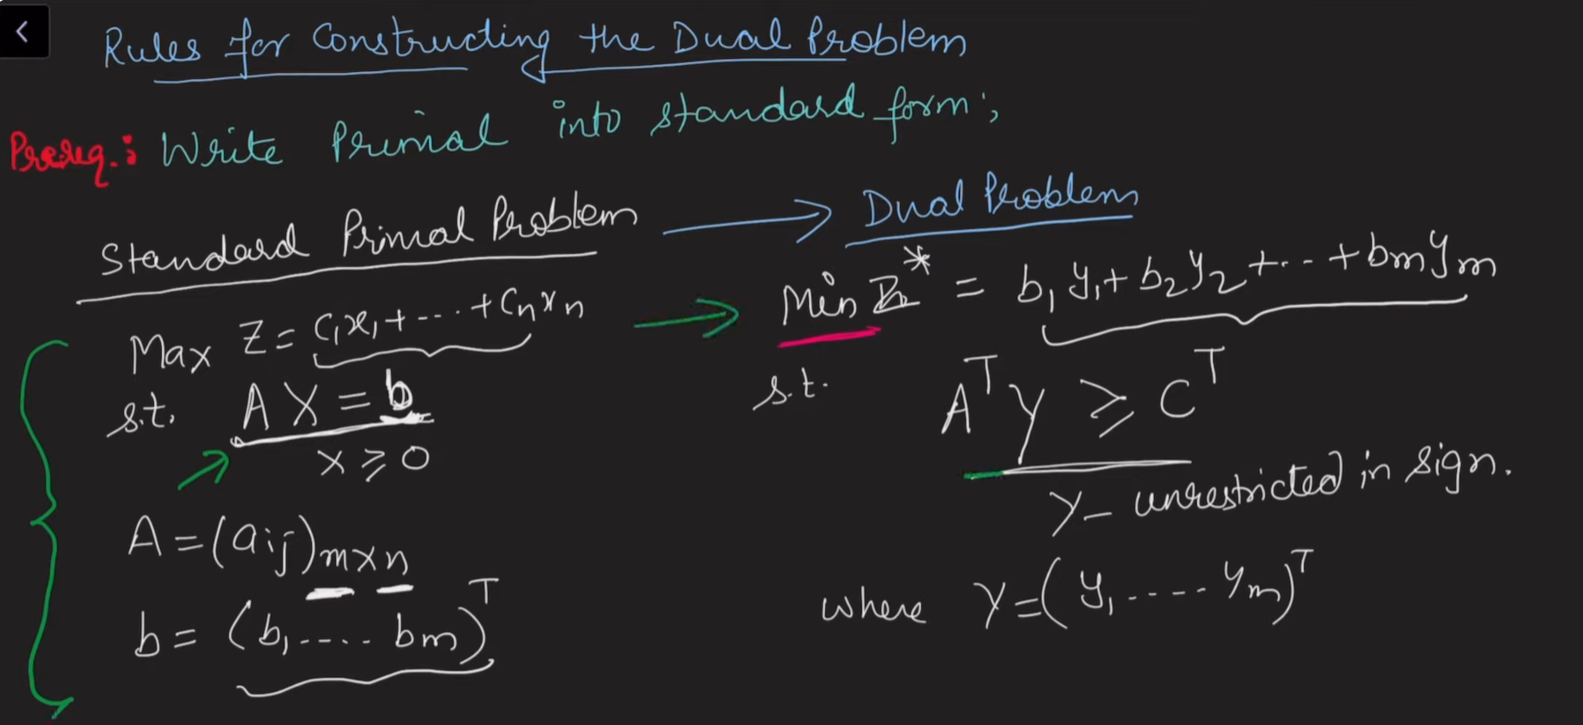 Rules for Constructing the Dual Problem
Prereq.: Write Primal into standard form;
Standard Primal Problem → Dual Problem
Max Z = C₁x₁ + --- + Cₙxₙ → Min Z* = b₁y₁ + b₂y₂ + -- + bₘyₘ
s.t. AX = b
s.t. Aᵀy ≥ Cᵀ
x ≥ 0
Y - unrestricted in sign.
A = (aij)m×n
b = (b₁ ---- bm)ᵀ
where Y = (y₁ ---- ym)ᵀ